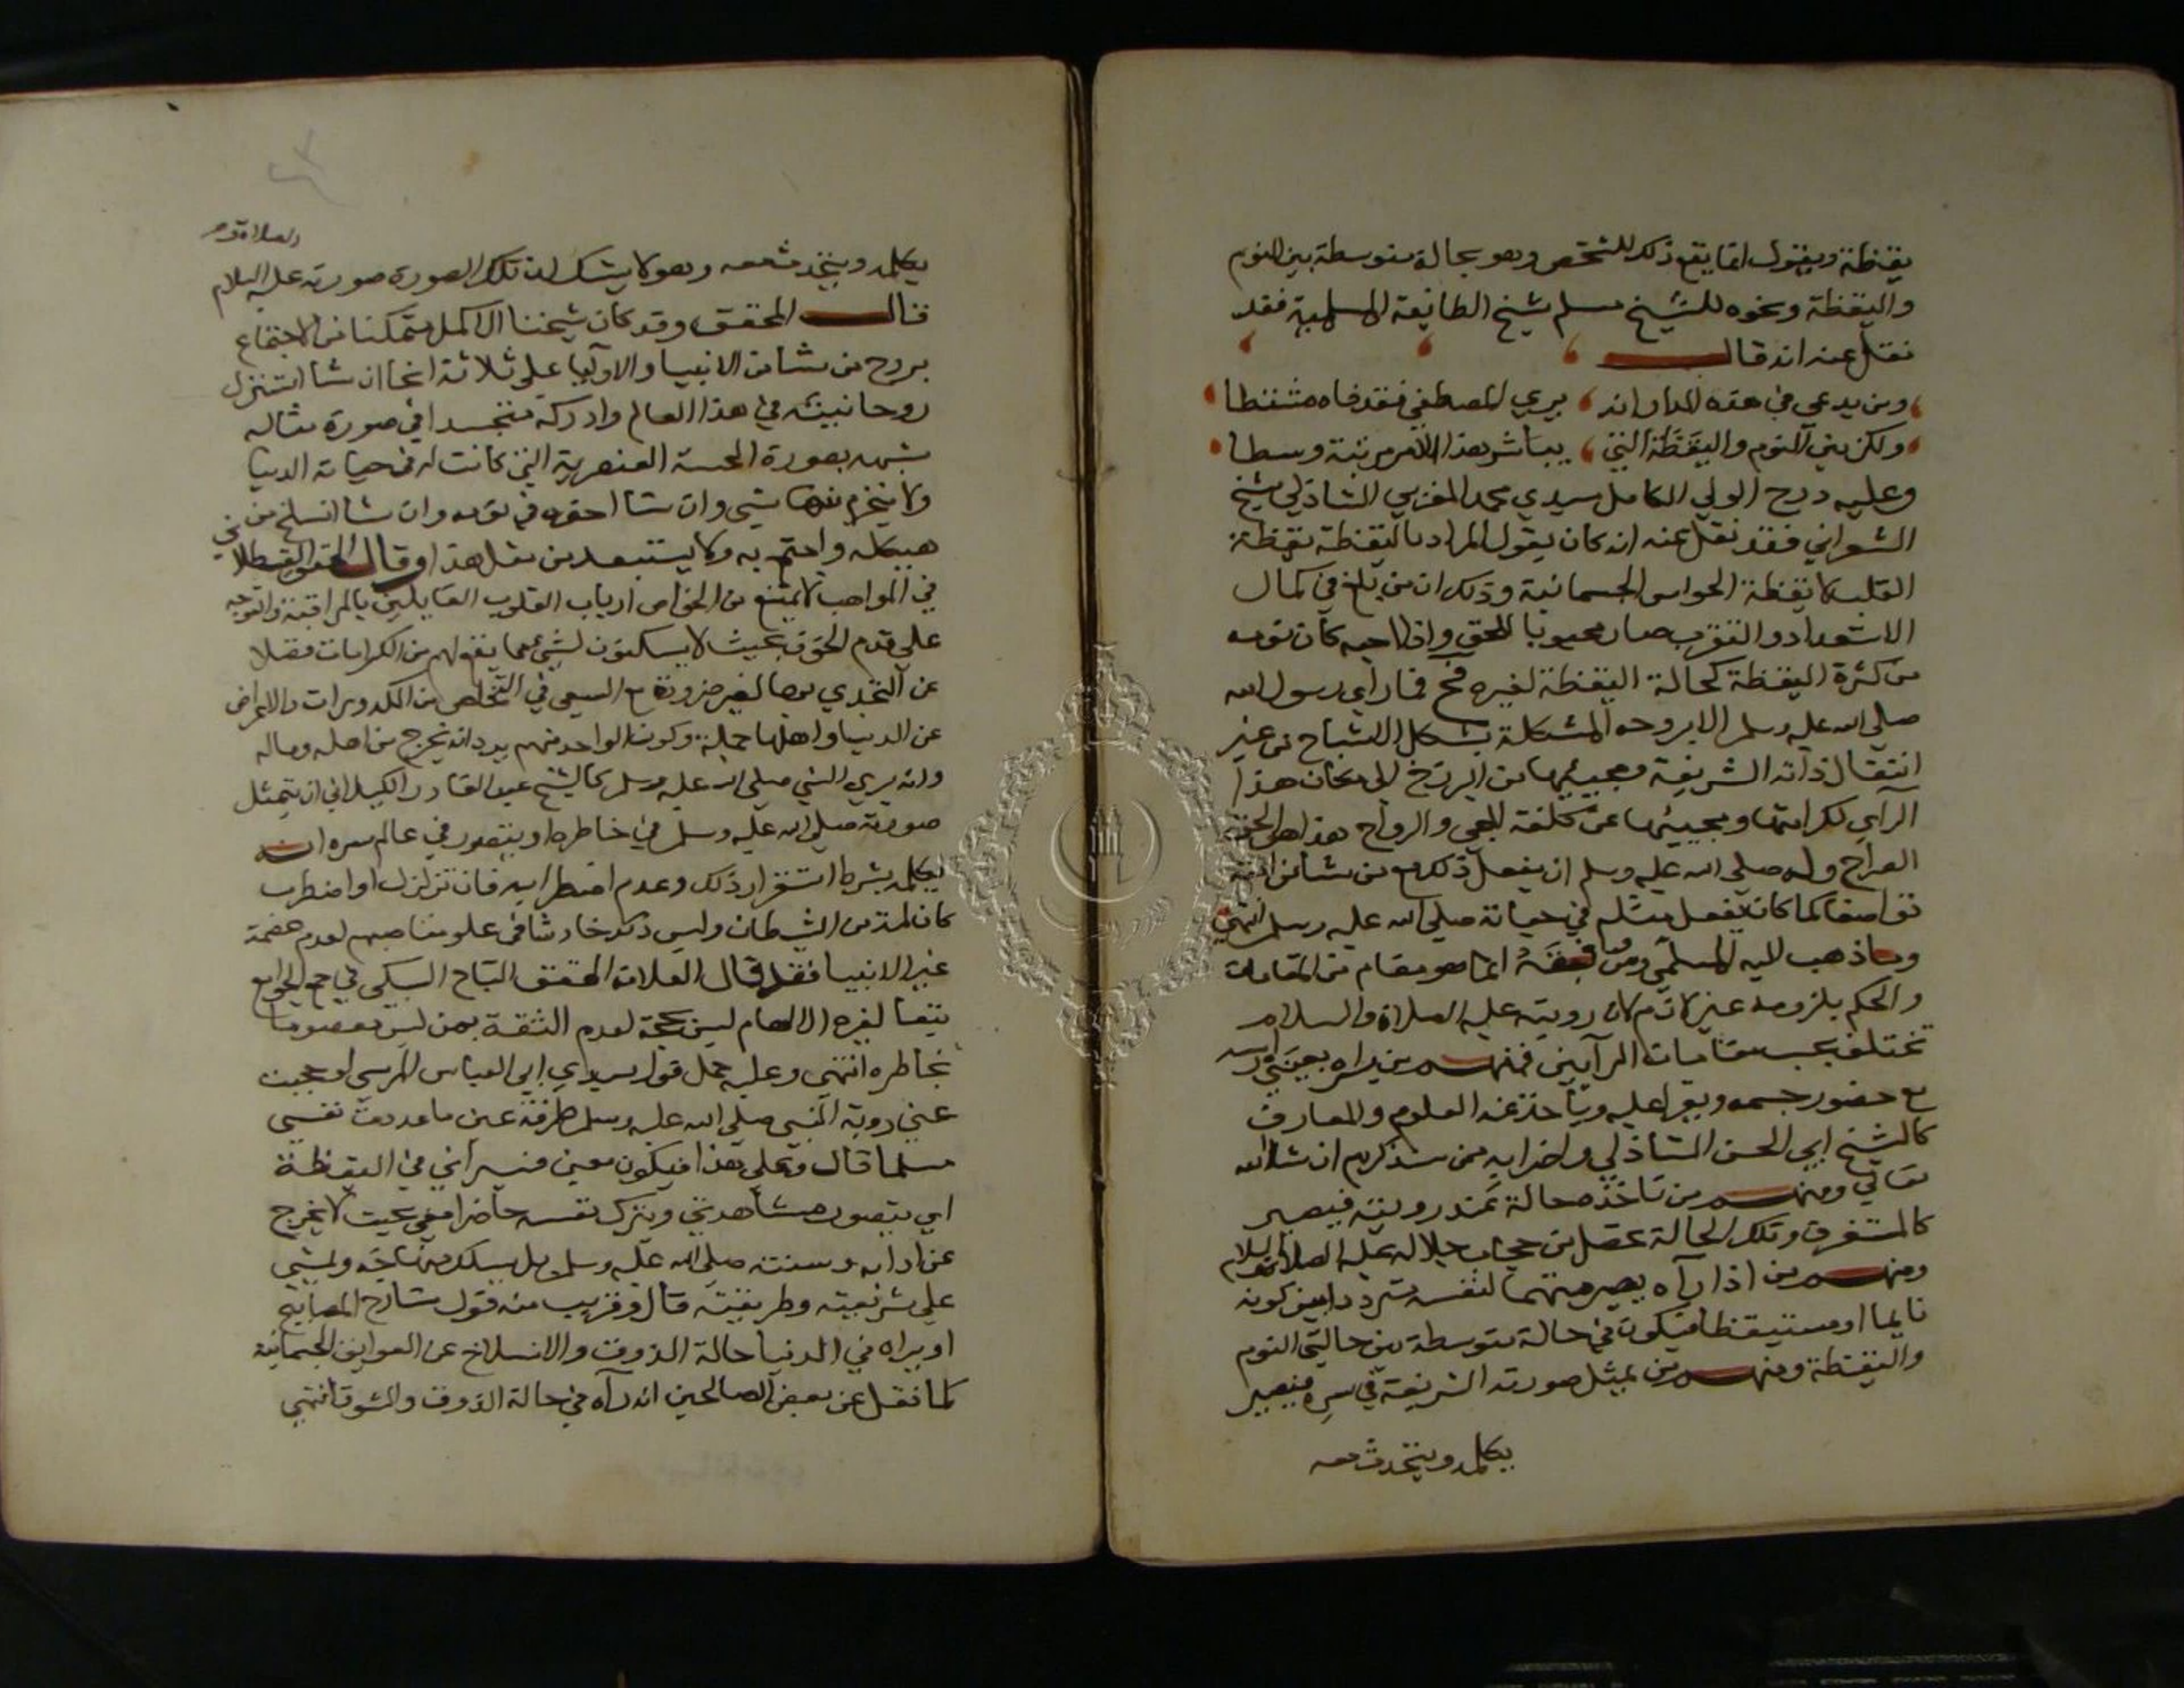 يقظة ويقول انما يقع ذلك للشخص وهو بحالة متوسطة بين النوم
واليقظة ونحوه للشيخ مسلم شيخ الطائفة المسلمية فقد
نقل عنه انه قال
ومن يدعي في هذه الدار انه يري المصطفي فقد فاه مشتطا
ولكن بين النوم واليقظة التي يباشر هذا الامر مرتبة وسطا
وعليه درج الولي الكامل سيدي محمد المغربي الشاذلي شيخ
الشعراني فقد نقل عنه انه كان يقول المراد باليقظة يقظة
القلب لا يقظة الحواس الجسمانية وذلك ان من بلغ في كمال
الاستعداد والتقرب صار محبوبا للحق واذا احبه كان نومه
من كثرة اليقظة كحالة اليقظة لغيره فح فما راي رسول الله
صلي الله عليه وسلم الا بروحه المشكلة بشكل الاشباح من غير
انتقال ذاته الشريفة ومجيئها من البرزخ الى مكان هذا
الرآي لكرامتها ومجيئها عن كلفة المجي والرواح هذا هو الحق
الصراح وله صلي الله عليه وسلم ان يفعل ذلك مع من شا من امته
تواضعا كما كان يفعل مثله في حياته صلي الله عليه وسلم انتهي
وما ذهب اليه المسلمي ومن انما هو مقام من المقامات
والحكم بلزومه غير لازم لان رويته عليه الصلاة والسلام
تختلف بحسب مقامات الرآيين فمنهم من يراه بعيني راسه
مع حضور جسمه ويقرا عليه وياخذ عنه العلوم والمعارف
كالشيخ ابي الحسن الشاذلي واضرابه ممن سنذكرهم ان شاالله
تعالي ومنهم من تاخذه حالة عند رويته فيصير
كالمستغرق وتلك الحالة تحصل من حجاب جلاله عليه الصلاة والسلام
ومنهم من اذا رآه يصير متهما لنفسه بتردد بين كونه
نايما او مستيقظا فيكون في حالة متوسطة بين حالتي النوم
واليقظة ومنهم من يمثل صورته الشريفة في سره فيصير
يكلمه ويتحدث معه
يكلمه ويتحدث معه وهو لا يشك ان تلك الصورة صورته عليه السلام
قال المحقق وقد كان شيخنا الاكمل متمكنا من الاجتماع
بروح من شا من الانبيا والاوليا علي ثلاثة انحا ان شا استنزل
روحانيته في هذا العالم وادركه متجسدا في صورة مثاله
شبيه بصورة الحسية العنصرية التي كانت له في حياته الدنيا
ولا ينخرم منها شي وان شا احضره في نومه وان شا انسلخ من
هيكله واجتمع به ولا يستبعد من مثل هذا وقال المحقق القسطلاني
في المواهب لا يمتنع من الخواص ارباب القلوب القايلين بالمراقبة والتوجه
علي قدم الخوف بحيث لا يسكنون لشي مما يقع لهم من الكرامات فضلا
عن التحدي بها لغير ضرورة مع السعي في التخلص من الكدورات والاعراض
عن الدنيا واهلها جملة وكون الواحد منهم يود انه يخرج من اهله وماله
وانه يري النبي صلي الله عليه وسلم كالشيخ عبد القادر الكيلاني ان يتمثل
صورته صلي الله عليه وسلم في خاطره او يتصور في عالم سره انه
يكلمه بشرط استقرار ذلك وعدم اضطرابه فان تزلزل او اضطرب
كان لمة من الشيطان وليس ذلك خادشا في علو مناصبهم لعدم عصمة
غير الانبيا فقد قال العلامة المحقق التاج السبكي في جمع الجوامع
تبعا لغيره الالهام ليس بحجة لعدم الثقة بمن ليس معصوما
بخاطره انتهي وعليه حمل قول سيدي ابي العباس المرسي لو حجبت
عني روية النبي صلي الله عليه وسلم طرفة عين ما عددت نفسي
مسلما قال وعلي هذا فيكون معني فسيراني في اليقظة
اي يتصور مشاهدتي وينزل نفسه حاضرا معي بحيث لا يخرج
عن ادابه وسنته صلي الله عليه وسلم بل يسلك منهاجه ويمشي
علي شريعته وطريقته قال وقريب منه قول شارح المصابيح
او يراه في الدنيا حالة الذوق والانسلاخ عن العوايق الجسمانية
كما نقل عن بعض الصالحين انه رآه في حالة الذوق والشوق انتهي